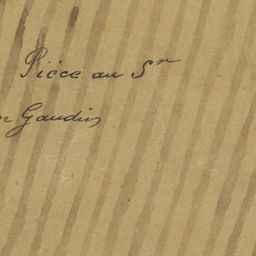 Pièce au Sr
Gaudin